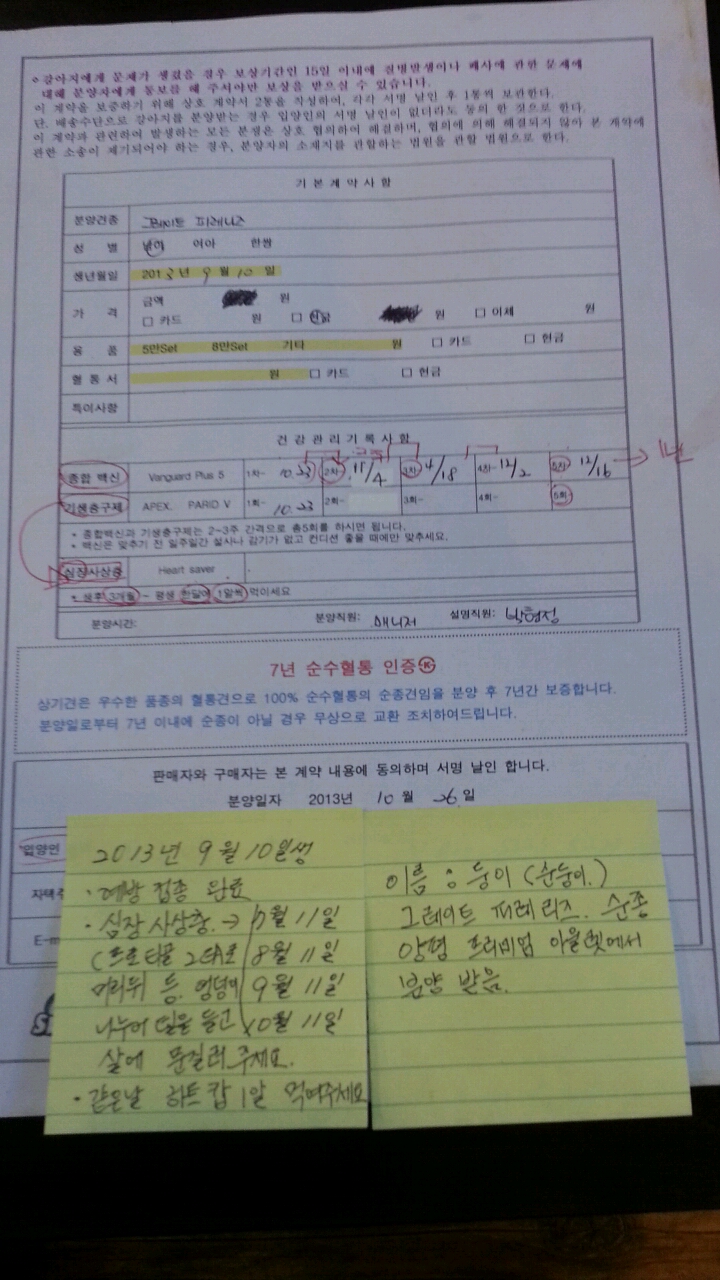 ◦강아지에게 문제가 생겼을 경우 보상기간인 15일 이내에 질병발생이나 폐사에 관한 문제에
대해 분양자에게 통보를 해 주셔야만 보상을 받으실 수 있습니다.
이 계약을 보증하기 위해 상호 계약서 2통을 작성하여, 각각 서명 날인 후 1통씩 보관한다.
단, 배송수단으로 강아지를 분양받는 경우 입양인의 서명 날인이 없더라도 동의 한 것으로 한다.
이 계약과 관련하여 발생하는 모든 분쟁은 상호 협의하여 해결하며, 협의에 의해 해결되지 않아 본 계약에
관한 소송이 제기되어야 하는 경우, 분양자의 소재지를 관할하는 법원을 관할 법원으로 한다.
기본계약사항
분양견종 그레이트 피레니즈
성 별 남아 여아 한쌍
생년월일 2013년 9월 10일
가 격 금액 원
□ 카드 원 □ 현금 원 □ 이체 원
용 품 5만Set 8만Set 기타 원 □ 카드 □ 현금
혈통서 원 □ 카드 □ 현금
특이사항
건강관리기록사항
종합 백신 Vanguard Plus 5 1차- 10.23 2차- 11/4 3차- 11/18 4차- 12/2 5차 12/16 → 1년
기생충구제 APEX. PARID V 1회- 10.23 2회- 3회- 4회- 5회-
* 종합백신과 기생충구제는 2~3주 간격으로 총5회를 하시면 됩니다.
* 백신은 맞추기 전 일주일간 설사나 감기가 없고 컨디션 좋을 때에만 맞추세요.
심장사상충 Heart saver
* 생후 3개월 ~ 평생 한달에 1알씩 먹이세요
분양시간: 분양직원: 매니저 설명직원: 박현정
7년 순수혈통 인증
상기견은 우수한 품종의 혈통견으로 100% 순수혈통의 순종견임을 분양 후 7년간 보증합니다.
분양일로부터 7년 이내에 순종이 아닐 경우 무상으로 교환 조치하여드립니다.
판매자와 구매자는 본 계약 내용에 동의하며 서명 날인 합니다.
분양일자 2013년 10월 26일
입양인
자택주
E-m
2013년 9월 10일생
· 예방 접종 완료
· 심장 사상충 → 7월 11일
(프로티골 2EA로 8월 11일
머리뒤 등. 엉덩이 9월 11일
나누어 털을 들고 10월 11일
살에 문질러주세요.
· 같은날 하트캅 1알 먹여주세요
이름 : 둥이 (순둥이.)
그레이트 피레리즈. 순종
양평 프리미엄 아울렛에서
분양 받음.